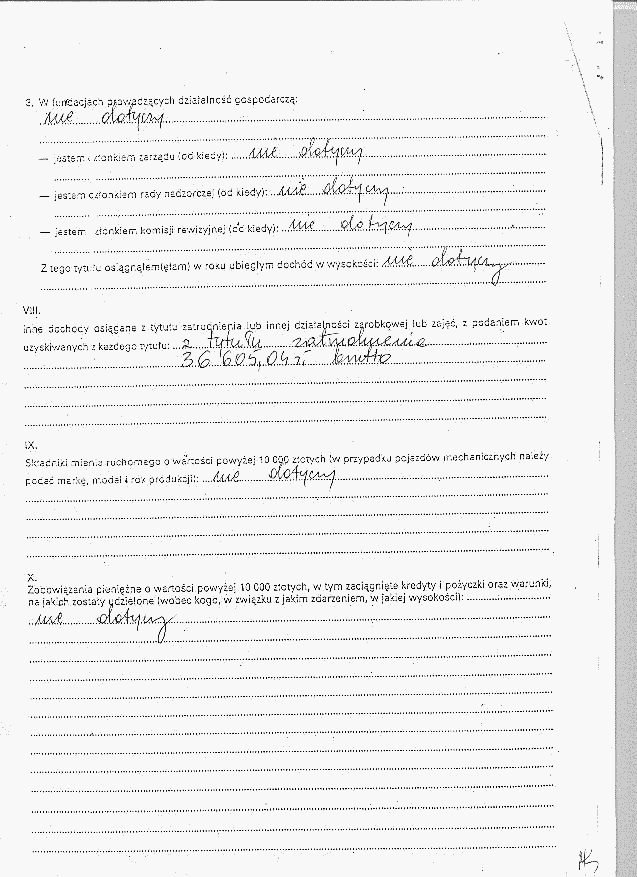 3. W fundacjach prowadzących działalność gospodarczą:
nie dotyczy
— jestem członkiem zarządu (od kiedy): nie dotyczy
— jestem członkiem rady nadzorczej (od kiedy): nie dotyczy
— jestem członkiem komisji rewizyjnej (od kiedy): nie dotyczy
Z tego tytułu osiągnąłem(ęłam) w roku ubiegłym dochód w wysokości: nie dotyczy
VIII.
Inne dochody osiągane z tytułu zatrudnienia lub innej działalności zarobkowej lub zajęć, z podaniem kwot
uzyskiwanych z każdego tytułu: z tytułu zatrudnienia
36 605,04 zł brutto
IX.
Składniki mienia ruchomego o wartości powyżej 10 000 złotych (w przypadku pojazdów mechanicznych należy
podać markę, model i rok produkcji): nie dotyczy
X.
Zobowiązania pieniężne o wartości powyżej 10 000 złotych, w tym zaciągnięte kredyty i pożyczki oraz warunki,
na jakich zostały udzielone (wobec kogo, w związku z jakim zdarzeniem, w jakiej wysokości):
nie dotyczy